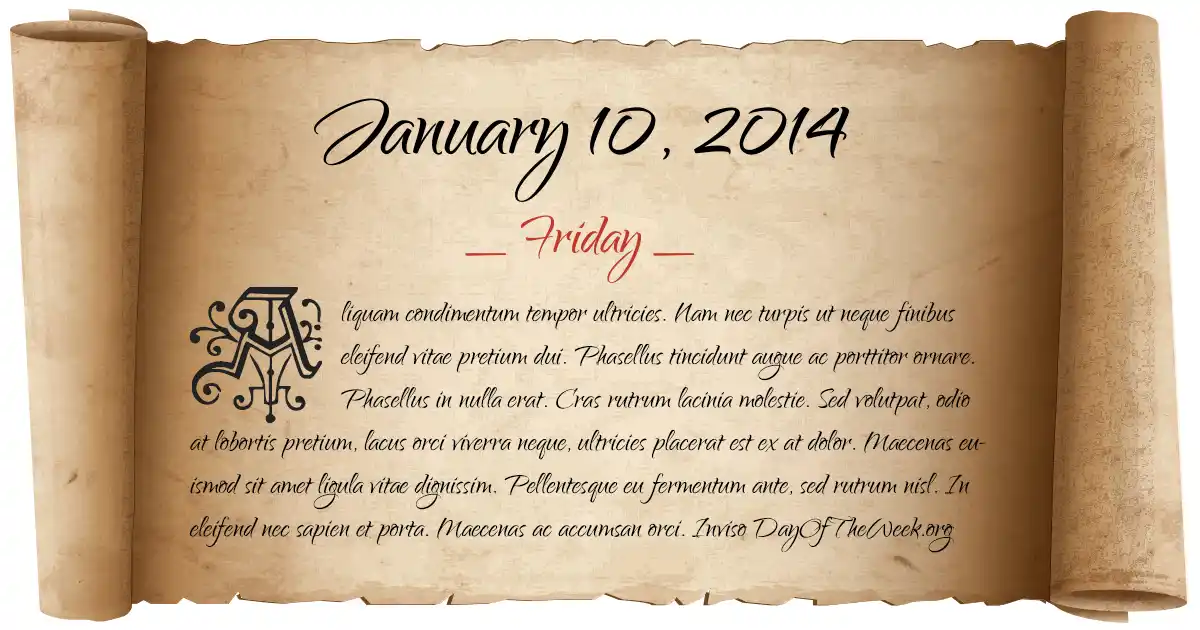 January 10, 2014
_ Friday _
Aliquam condimentum tempor ultricies. Nam nec turpis ut neque finibus
eleifend vitae pretium dui. Phasellus tincidunt augue ac porttitor ornare.
Phasellus in nulla erat. Cras rutrum lacinia molestie. Sed volutpat, odio
at lobortis pretium, lacus orci viverra neque, ultricies placerat est ex at dolor. Maecenas eu-
ismod sit amet ligula vitae dignissim. Pellentesque eu fermentum ante, sed rutrum nisl. In
eleifend nec sapien et porta. Maecenas ac accumsan orci. Inviso DayOfTheWeek.org